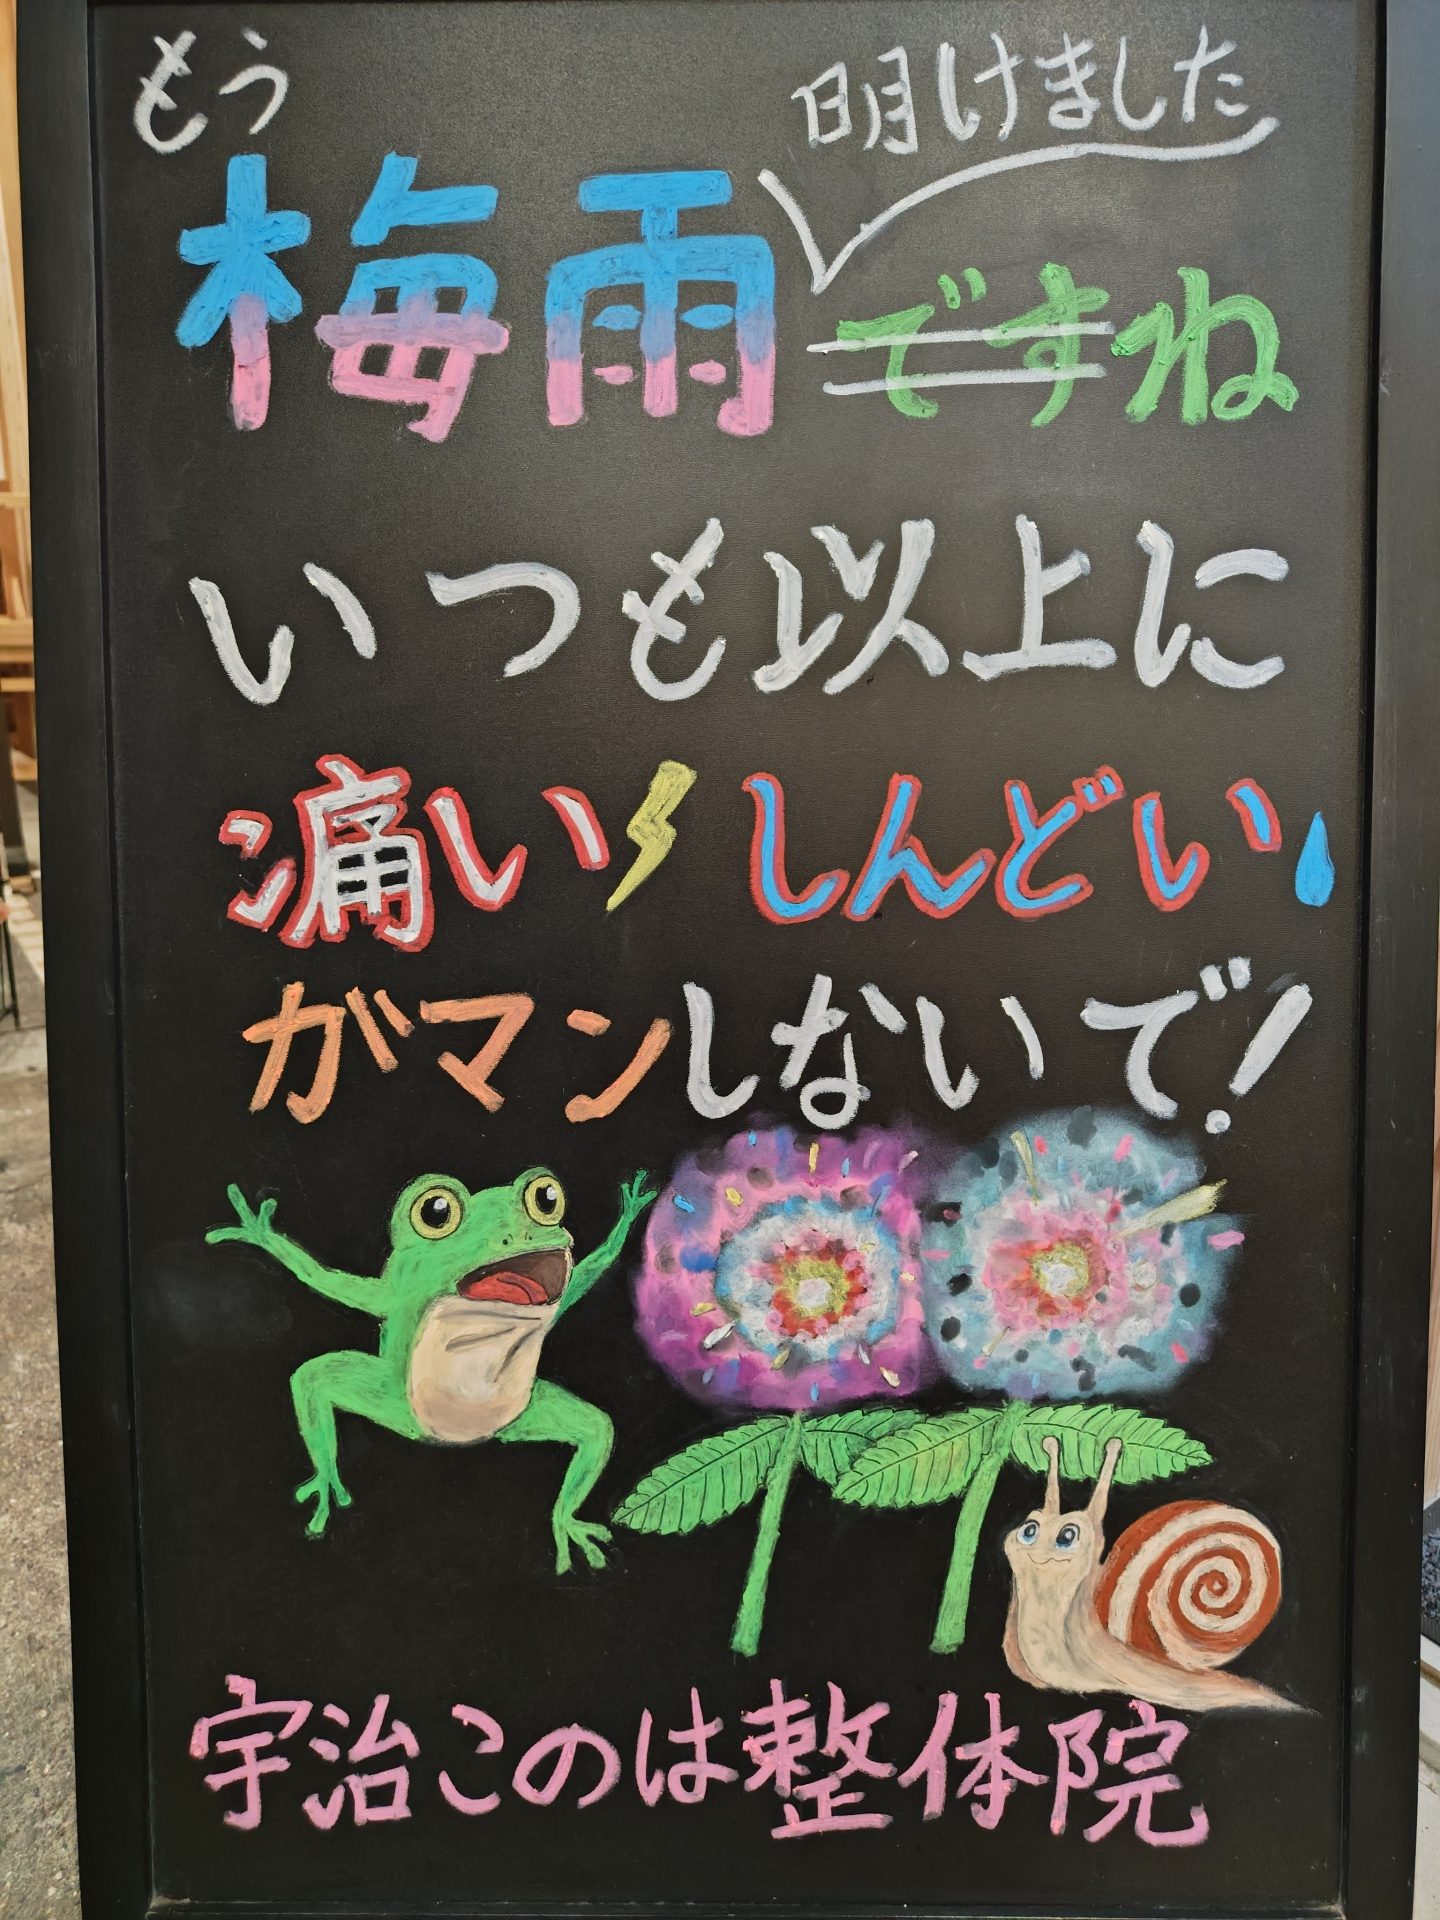 もう
明けました
梅雨ですね
いつも以上に
痛い しんどい
ガマンしないで!
宇治このは整体院